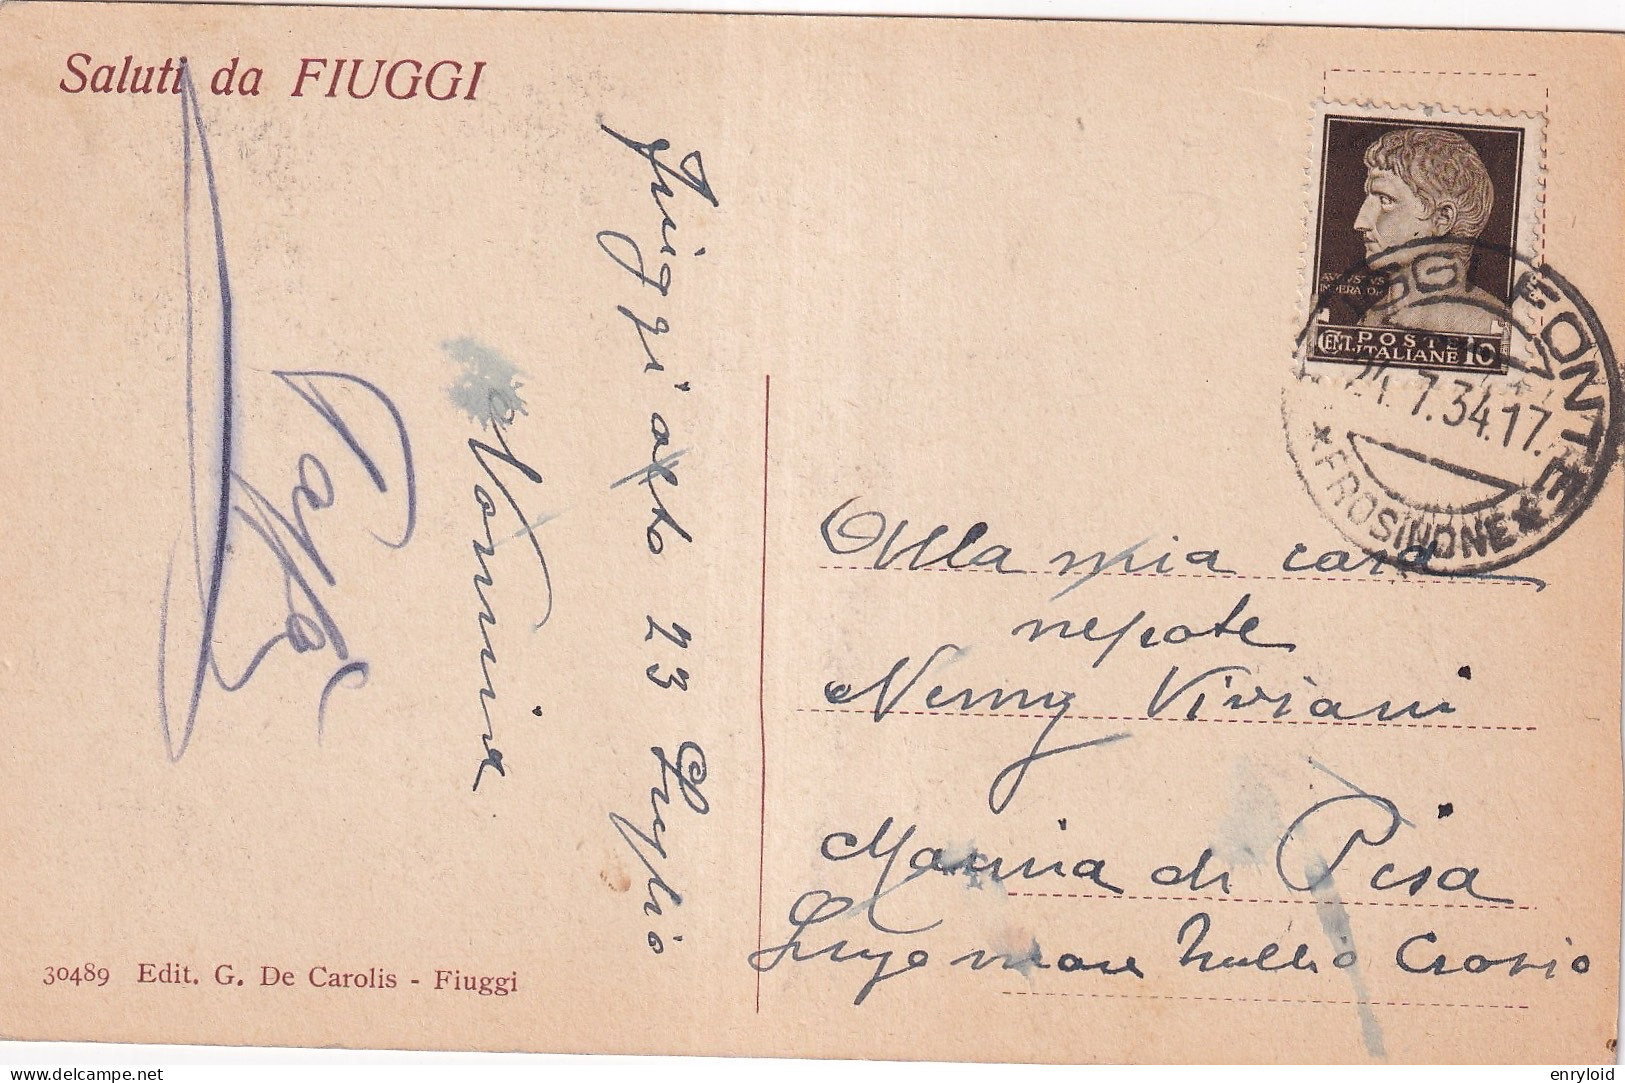 Saluti da FIUGGI
Fiuggi alto 23 Luglio
Nonnina
AVGVSTVS
IMPERATOR
CENT. POSTE 10
ITALIANE
FIUGGI FONTE
24.7.34.17
FROSINONE
Alla mia cara
nepote
Nemy Viviani
Marina di Pisa
Lungo mare Tullio Crosio
30489 Edit. G. De Carolis - Fiuggi
Delcampe.net
enryloid